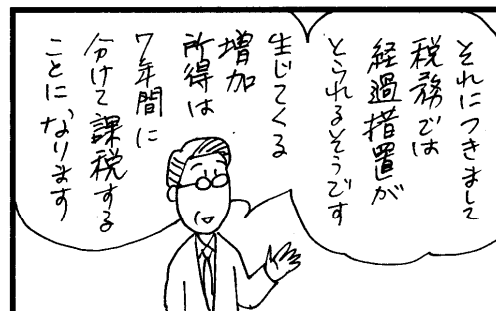 それにつきまして
税務では
経過措置が
とられるそうです
生じてくる
増加
所得は
7年間に
分けて課税する
ことになります